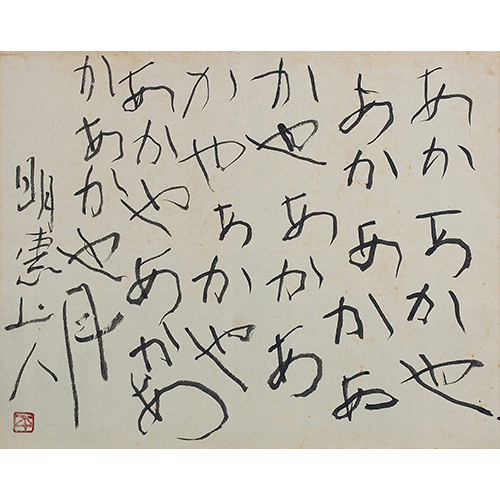 あかあかや
あかあかあ
かやあかあ
かやあかや
あかやあかあ
かあかや月
明恵上人